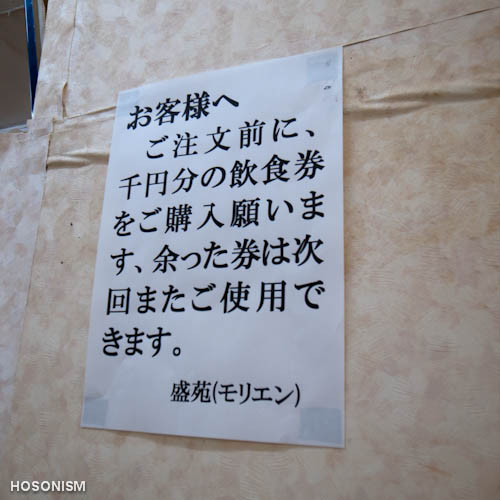 お客様へ
ご注文前に、
千円分の飲食券
をご購入願いま
す、余った券は次
回またご使用で
きます。
盛苑(モリエン)
HOSONISM